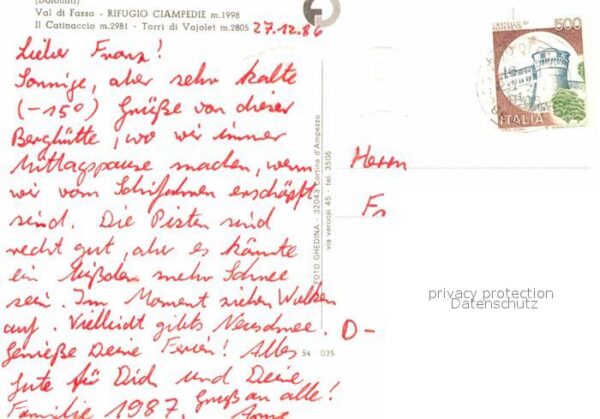 (Dolomiti)
Val di Fassa - RIFUGIO CIAMPEDIE m.1998
Il Catinaccio m.2981 - Torri di Vajolet m.2805
27.12.86
Lieber Franz!
Sonnige, aber sehr kalte
(-15°) Grüße von dieser
Berghütte, wo wir immer
Mittagspause machen, wenn
wir vom Schifahren erschöpft
sind. Die Pisten sind
recht gut, aber es könnte
ein bißchen mehr Schnee
sein. Im Moment ziehen Wolken
auf. Vielleicht gibts Neuschnee.
Genieße Deine Ferien! Alles
Gute für Dich und Deine
Familie 1987. Gruß an alle!
FOTO GHEDINA - 32043 Cortina d'Ampezzo
via verocai 45 - tel. 3505
54 035
Herrn
Fr
D-
CASTELLO DI
ROVERETO
500
ITALIA
privacy protection
Datenschutz